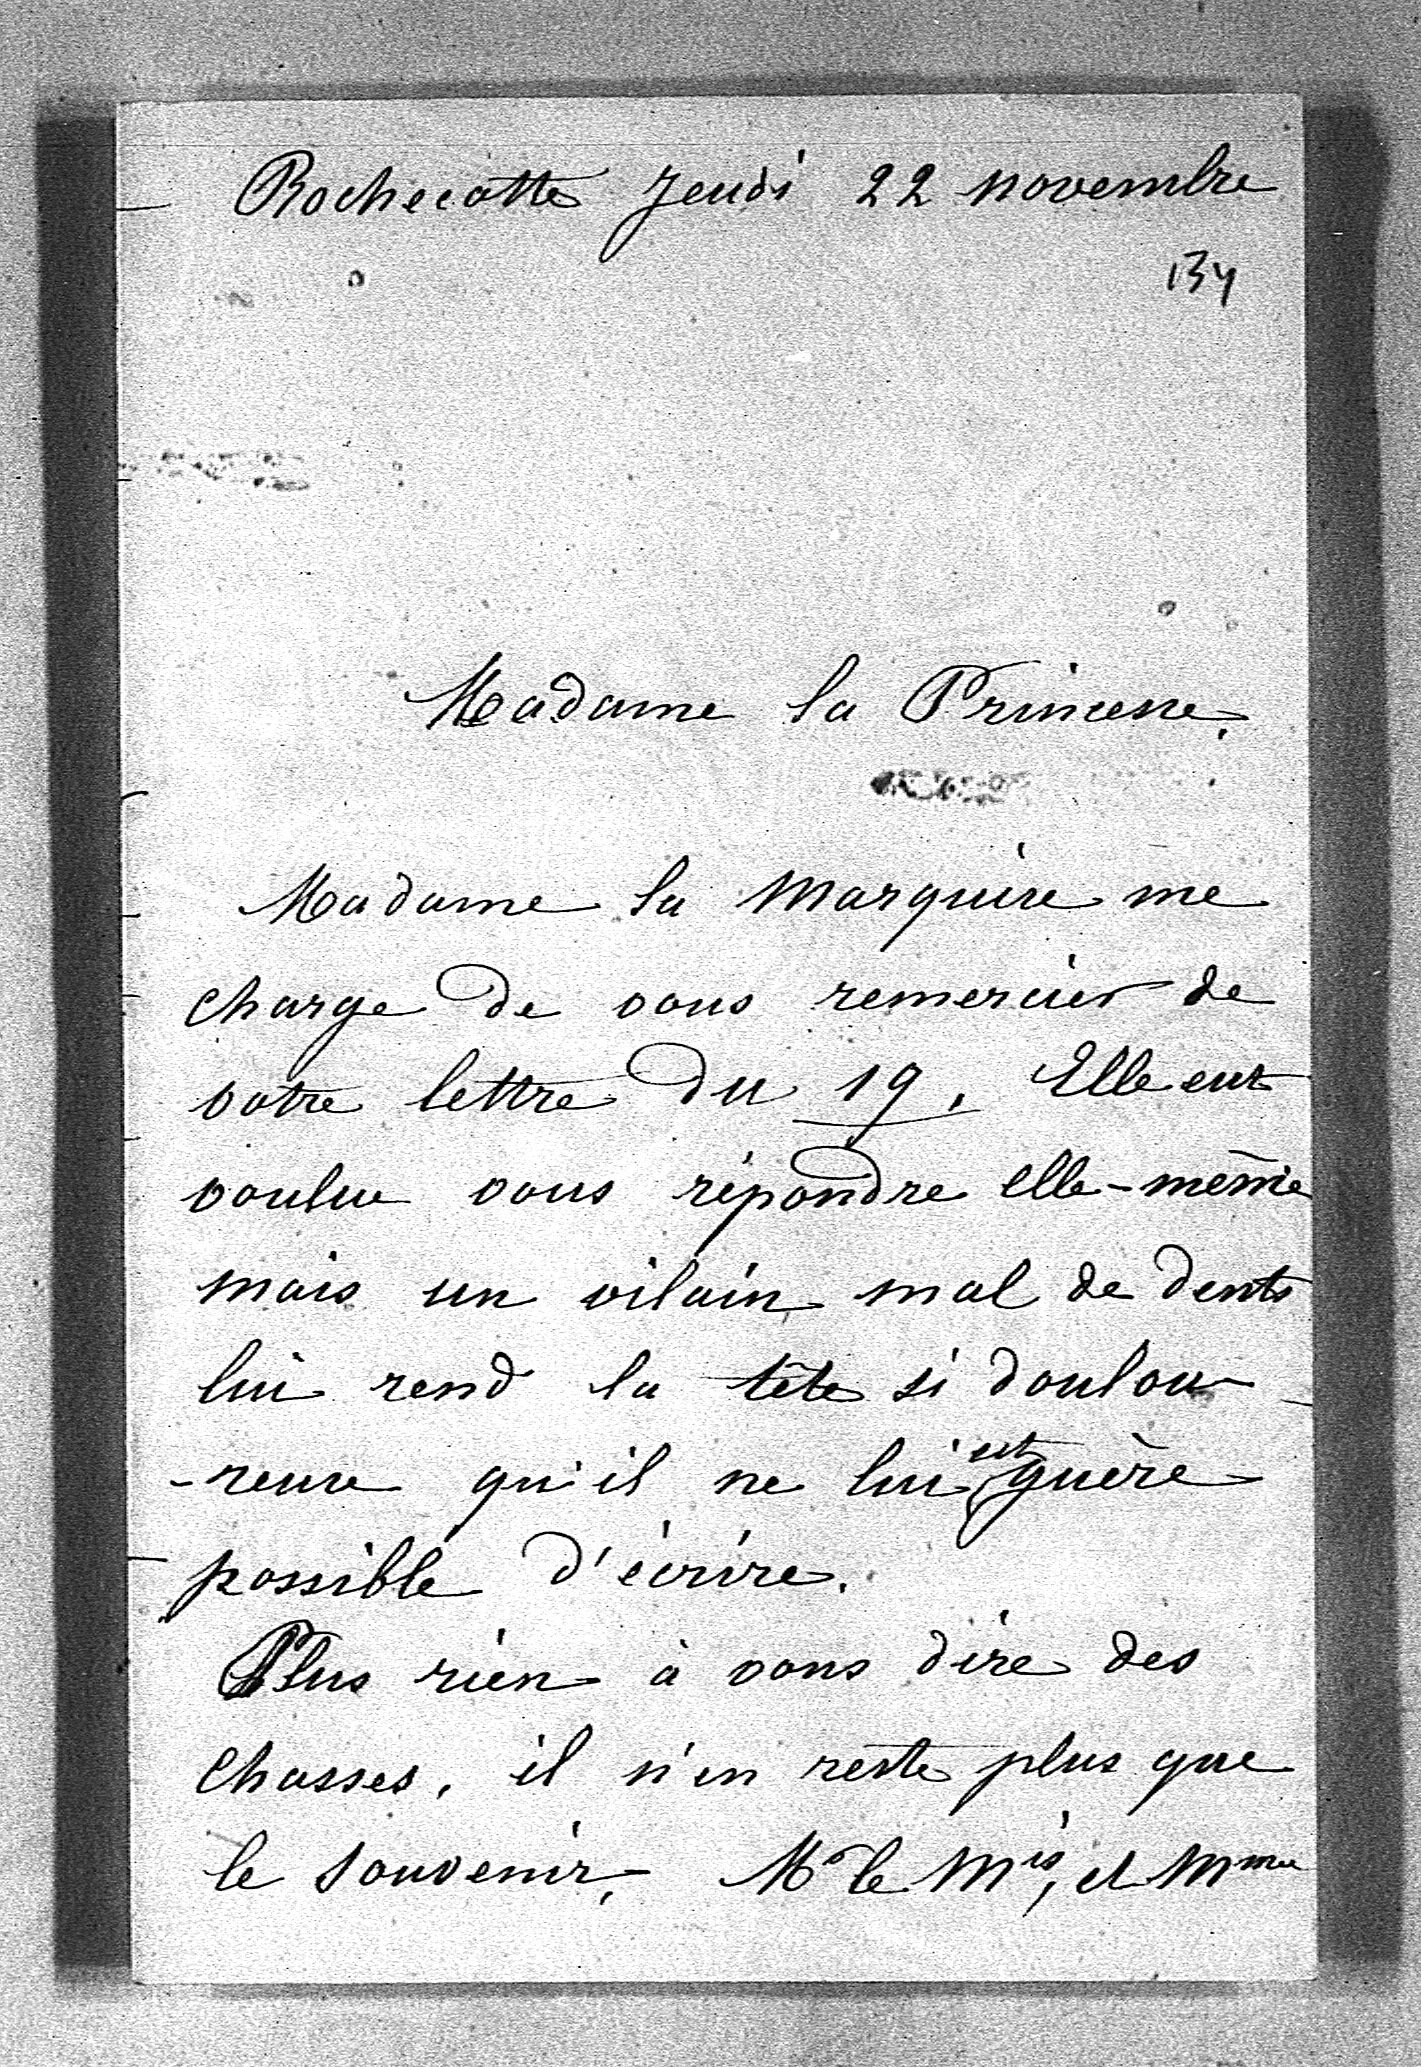 Rochecotte Jeudi 22 novembre
134
Madame la Princesse,
Madame la Marquise me
charge de vous remercier de
votre lettre du 19. Elle eut
voulue vous répondre elle-même
mais un vilain mal de dents
lui rend la tête si doulou-
-reuse qu'il ne lui est guère
possible d'écrire.
Plus rien à vous dire des
chasses, il n'en reste plus que
le souvenir, Mr le Mis, et Mme